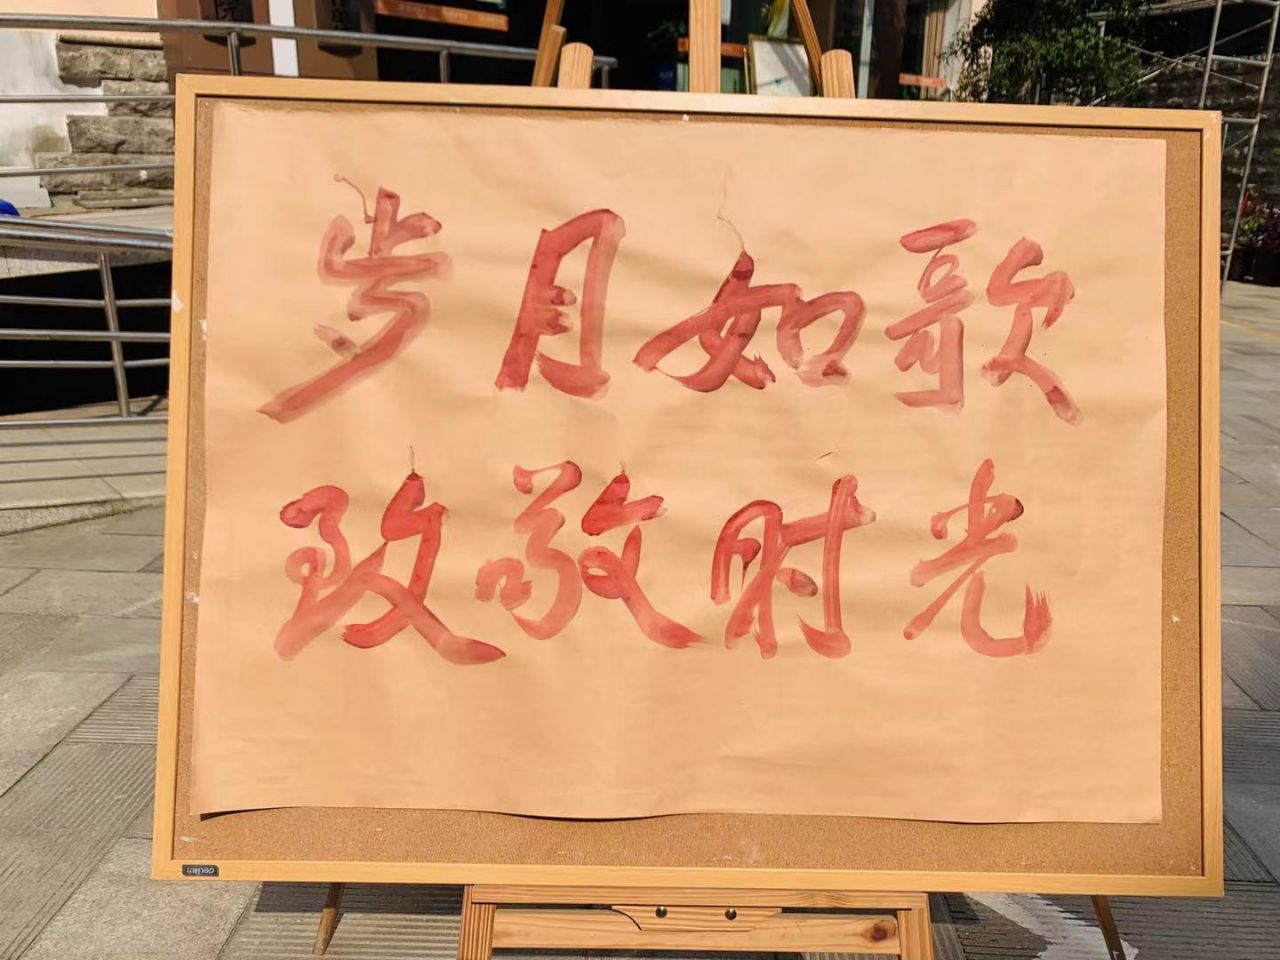 岁月如歌
致敬时光